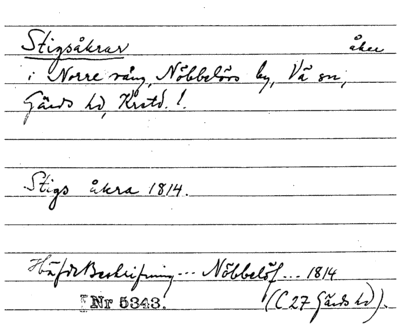 Stigsåkrar åker
i Norre vång, Nöbbelövs by, Vä sn,
Gärds hd, Kristd. l.
Stigs åkra 1814.
Häfde Beskrifning --- Nöbbelöf --- 1814
Nr 5343. (C 27 Gärds hd).